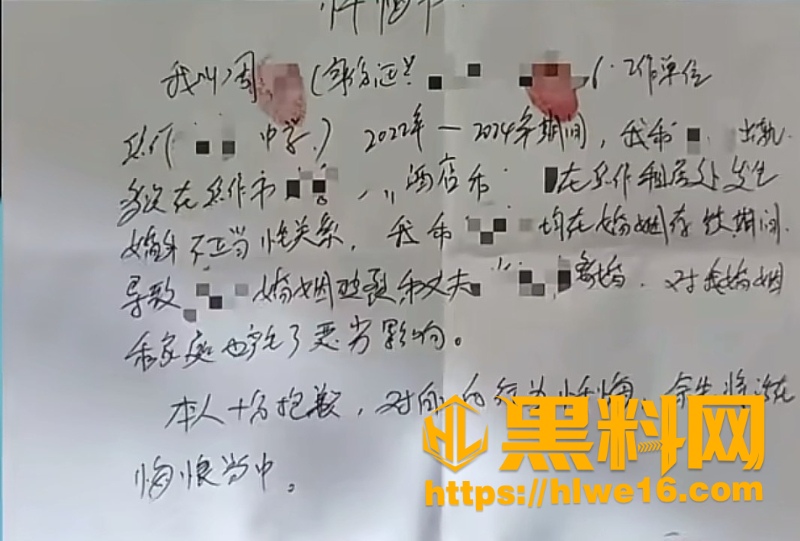 忏悔书
我叫周 (身份证号 工作单位
焦作 中学.) 2022年—2024年期间,我和 出轨
多次在焦作市 酒店和 在焦作租房处发生
婚外不正当性关系,我和 均在婚姻存续期间.
导致 婚姻破裂和丈夫 离婚.对我婚姻
和家庭也产生了恶劣影响。
本人十分抱歉,对自己的行为忏悔,余生将活在
悔恨当中。
HL 黑料网
https://hlwe16.com